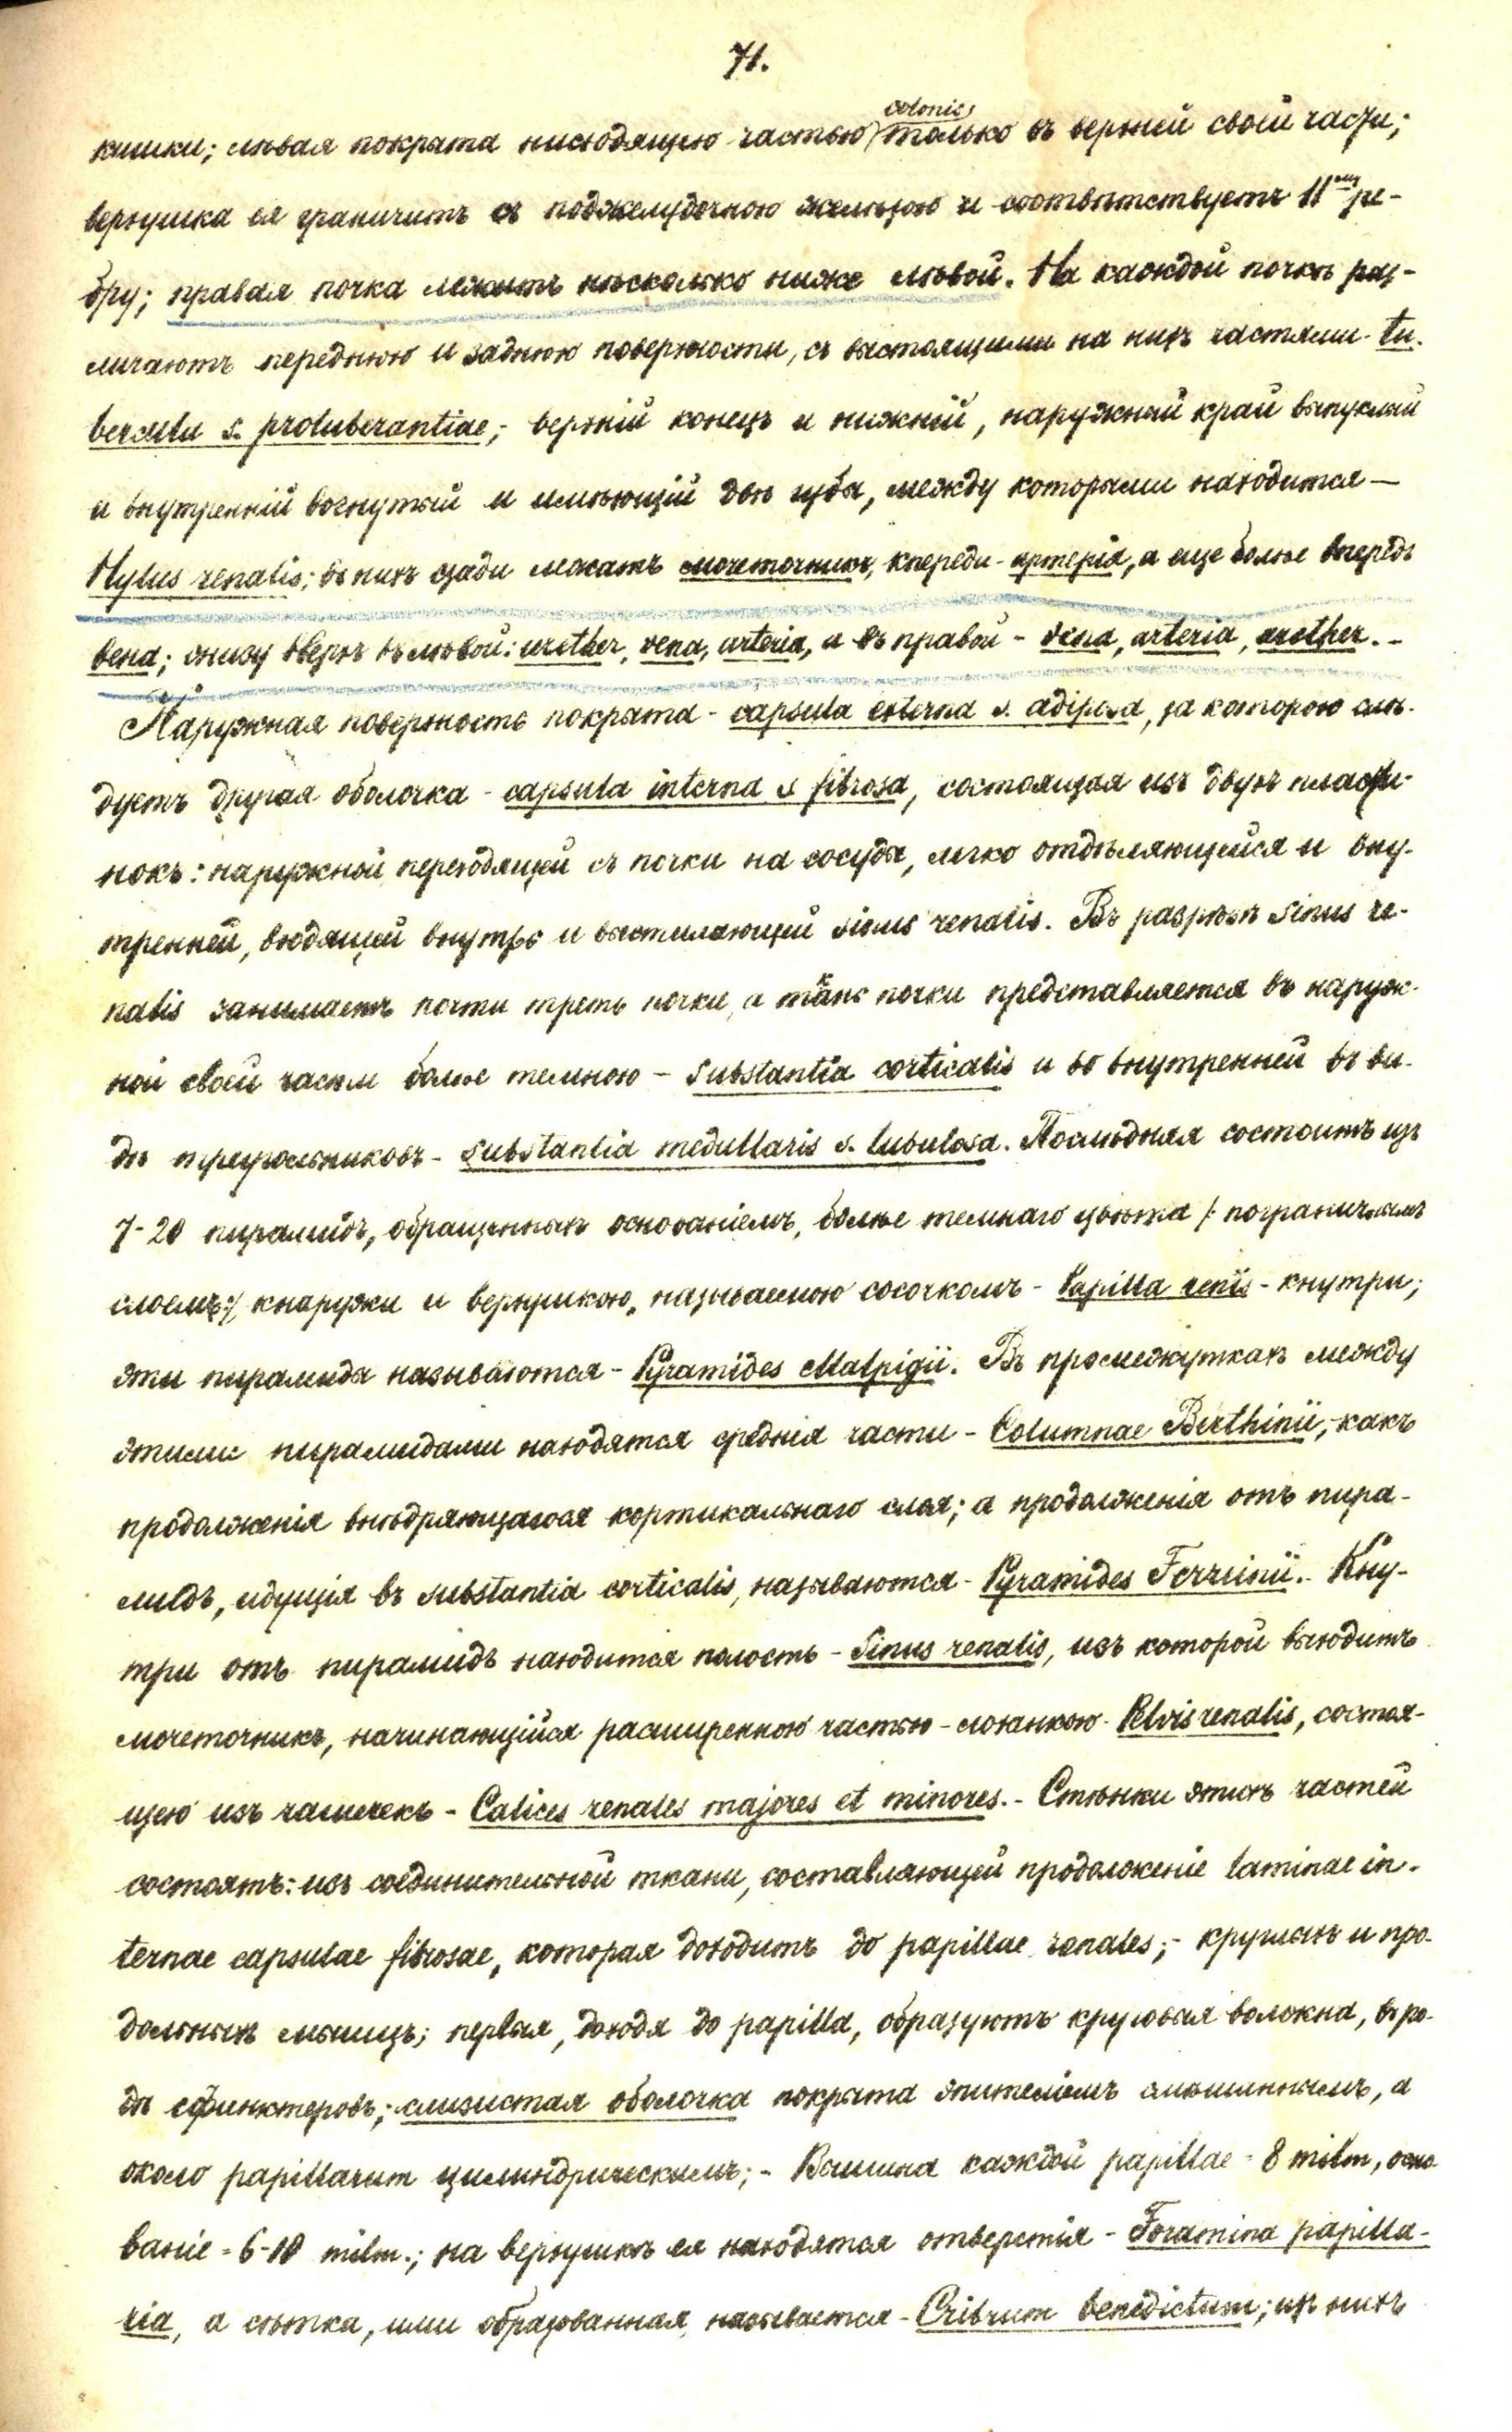 71.
colonis
кишки; лѣвая покрыта нисходящею частью только въ верхней своей части;
верхушка ея граничитъ съ поджелудочною железою и соотвѣтствуетъ 11му ре-
бру; правая почка лежитъ нѣсколько ниже лѣвой. На каждой почкѣ раз-
личаютъ переднюю и заднюю поверхности, съ выстоящими на нихъ частями - tu-
bercula s. protuberantiae; - верхній конецъ и нижній, наружный край выпуклый
и внутренній вогнутый и имѣющій двѣ губы, между которыми находится —
Hylus renalis; въ нихъ сзади лежатъ мочеточникъ, кпереди - артерія, а еще болѣе впередъ
вена; снизу вверхъ въ лѣвой: urether, vena, arteria, а въ правой - vena, arteria, urether. -
Наружная поверхность покрыта - capsula externa s. adiposa, за которою слѣ-
дуетъ другая оболочка - capsula interna s. fibrosa, состоящая изъ двухъ пласти-
нокъ: наружной переходящей съ почки на сосуды, легко отдѣляющейся и вну-
тренней, входящей внутрь и выстилающей sinus renalis. Въ разрѣзѣ sinus re-
nalis занимаетъ почти треть почки, а ткань почки представляется въ наруж-
ной своей части болѣе темною - substantia corticalis и во внутренней въ ви-
дѣ треугольниковъ - substantia medullaris s. tubulosa. Послѣдняя состоитъ изъ
7-20 пирамидъ, обращенныхъ основаніемъ, болѣе темнаго цвѣта /: пограничнымъ
слоемъ :/, кнаружи и верхушкою, называемою сосочкомъ - Papilla renis - кнутри;
эти пирамиды называются - Pyramides Malpigii. Въ промежуткахъ между
этими пирамидами находятся среднія части - Columnae Berthinii, - какъ
продолженія внѣдряющагося кортикальнаго слоя; а продолженія отъ пира-
мидъ, идущія въ substantia corticalis, называются - Pyramides Ferreinii. - Кну-
три отъ пирамидъ находится полость - Sinus renalis, изъ которой выходитъ
мочеточникъ, начинающійся расширенною частью - лоханкою - Pelvis renalis, состоя-
щею изъ чашечекъ - Calices renales majores et minores. - Стѣнки этихъ частей
состоятъ: изъ соединительной ткани, составляющей продолженіе laminae in-
ternae capsulae fibrosae, которая доходитъ до papillae renales; - круглыхъ и про-
дольныхъ мышцъ; первыя, доходя до papilla, образуютъ круговыя волокна, въ ро-
дѣ сфинктеровъ; - слизистая оболочка покрыта эпителіемъ смѣшаннымъ, а
около papillarum цилиндрическимъ; - Вышина каждой papillae - 8 milm, осно-
ваніе - 6-10 milm.; на верхушкѣ ея находятся отверстія - Foramina papilla-
ria, а сѣтка, ими образованная, называется - Cribrum benedictum; изъ нихъ